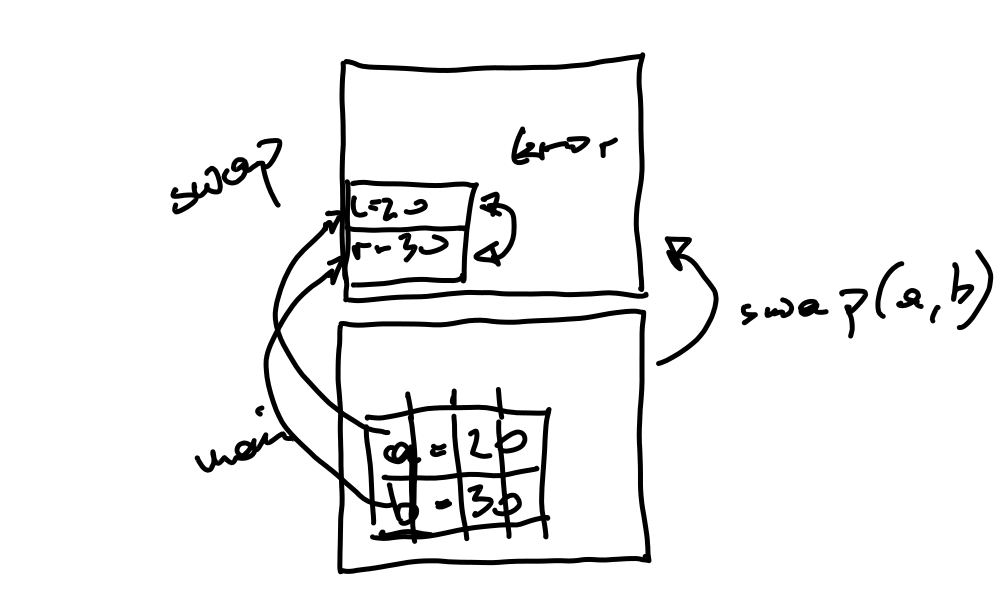 swap
l↔r
l=20
r=30
swap(a,b)
main
a=20
b=30